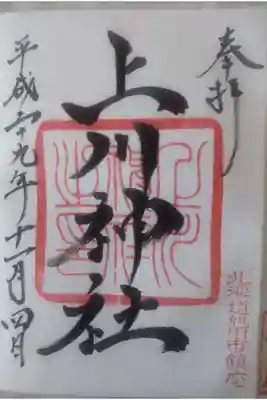 奉拝
北海道旭川市鎮座
上川神社
上川神社之印
平成二十九年十一月四日